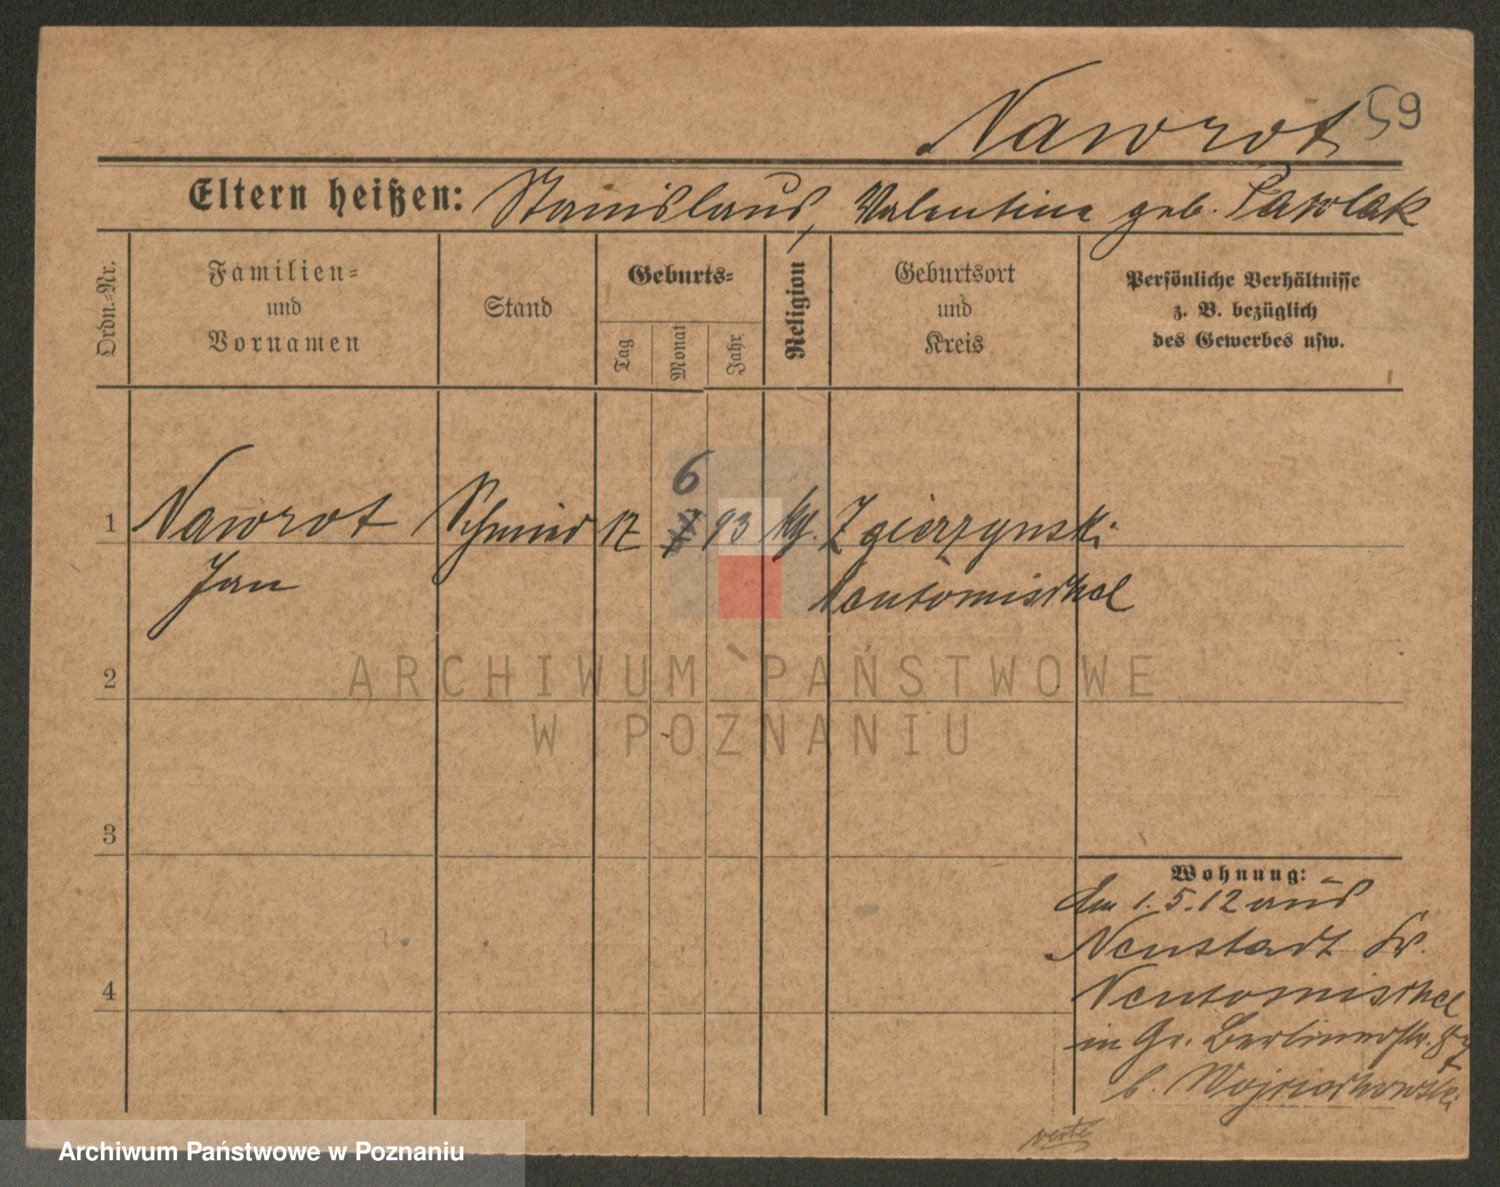 Nawrot 59
Eltern heißen: Stanislaus, Valentine geb. Pawlak
Ordn.-Nr.
Familien-
und
Vornamen
Stand
Geburts-
Tag
Monat
Jahr
Religion
Geburtsort
und
Kreis
Persönliche Verhältnisse
z. B. bezüglich
des Gewerbes usw.
6
1 Nawrot Schmied 17 7 93 kg. Zgierzynski
Jan Neutomischel
2
ARCHIWUM PAŃSTWOWE
W POZNANIU
3
Wohnung:
Am 1.5.12 aus
Neustadt Kr.
4
Neutomischel
in Gr. Berlinerstr. 87
b. Wojciechowski
verte
Archiwum Państwowe w Poznaniu